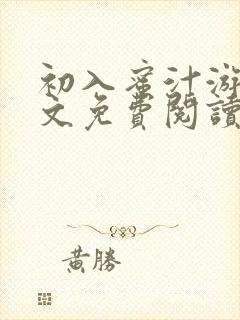 初入蜜汁游
文免費閱讀
黃勝